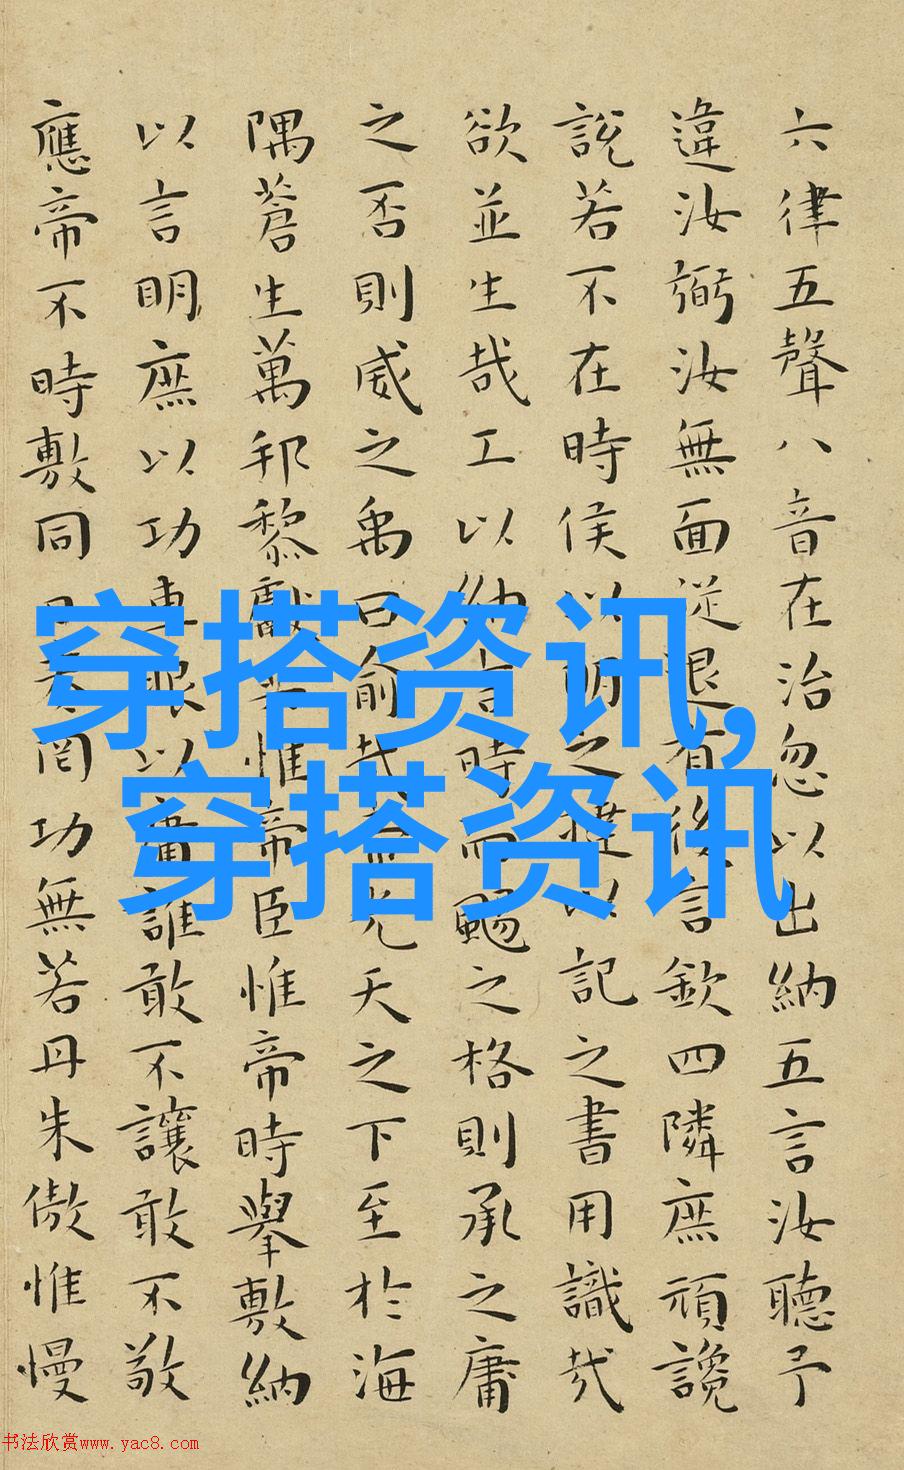 六律五聲八音在治忽以出納五言汝聽予
違汝弼汝無面從退有後言欽四隣庶頑讒
說若不在時侯以明之撻以記之書用識哉
欲並生哉工以納言時而颺之格則承之庸
之否則威之禹曰俞哉帝光天之下至於海
隅蒼生萬邦黎獻共惟帝臣惟帝時舉敷納
以言明庶以功車服以庸誰敢不讓敢不敬
應帝不時敷同日奏罔功無若丹朱傲惟慢
穿搭资讯,
穿搭资讯
书法欣赏www.yac8.com